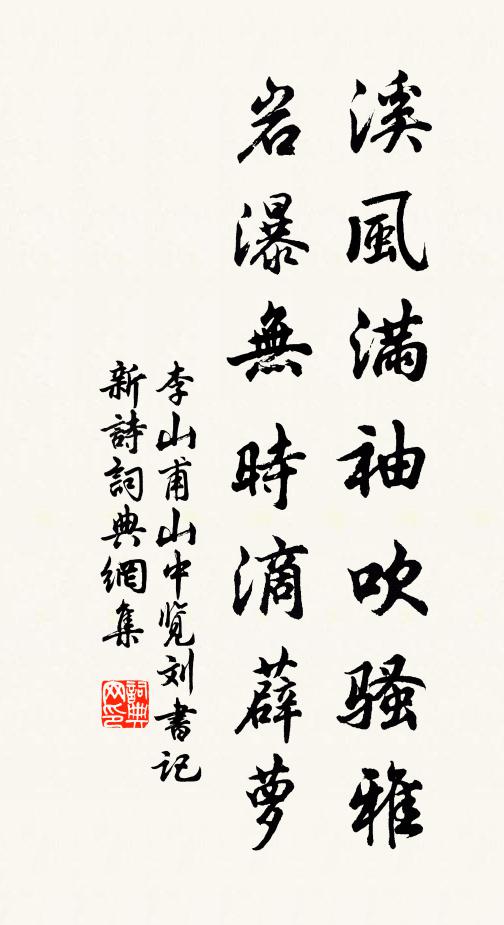 溪風滿袖吹騷雅
岩瀑無時滴薜蘿
李山甫山中覧刘書記
新詩詞典網集
詞典网印